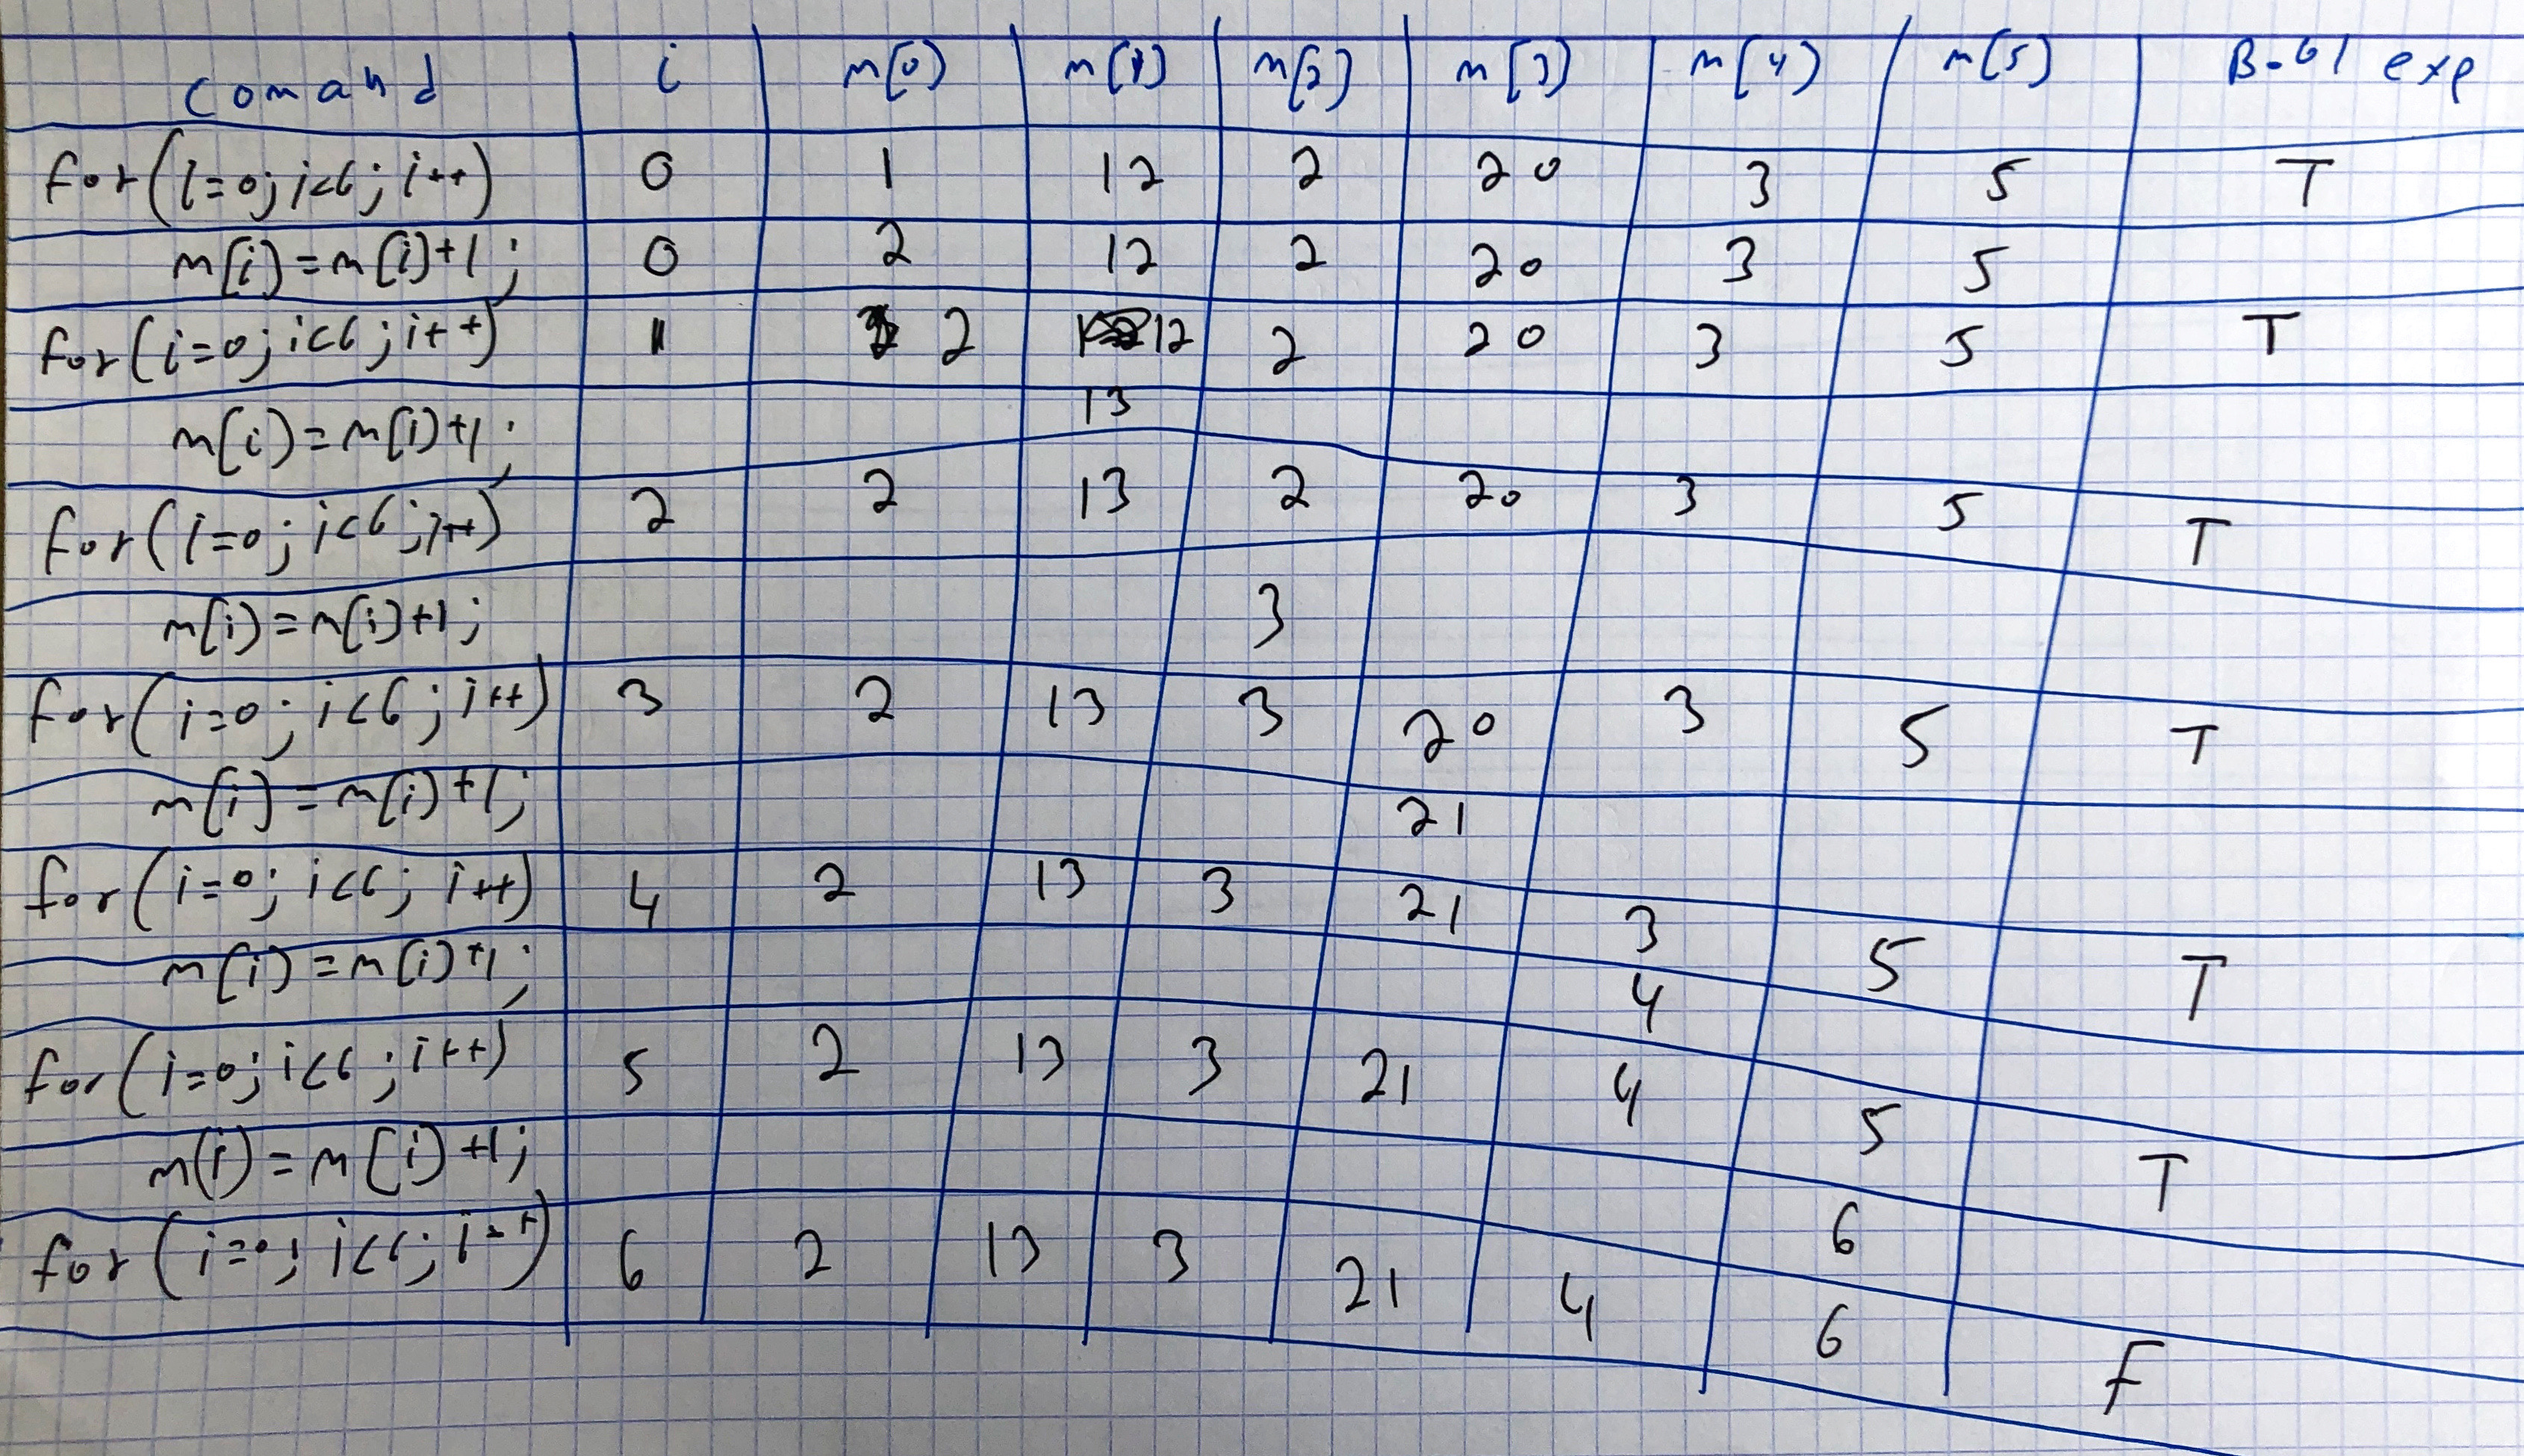 comand i m[0] m[1] m[2] m[3] m[4] m[5] Bool exp
for(i=0; i<6; i++) 0 1 12 2 20 3 5 T
m[i]=m[i]+1; 0 2 12 2 20 3 5
for(i=0; i<6; i++) 1 2 12 2 20 3 5 T
m[i]=m[i]+1; 13
for(i=0; i<6; i++) 2 2 13 2 20 3 5 T
m[i]=m[i]+1; 3
for(i=0; i<6; i++) 3 2 13 3 20 3 5 T
m[i]=m[i]+1; 21
for(i=0; i<6; i++) 4 2 13 3 21 3 5 T
m[i]=m[i]+1; 4
for(i=0; i<6; i++) 5 2 13 3 21 4 5 T
m[i]=m[i]+1; 6
for(i=0; i<6; i++) 6 2 13 3 21 4 6 F